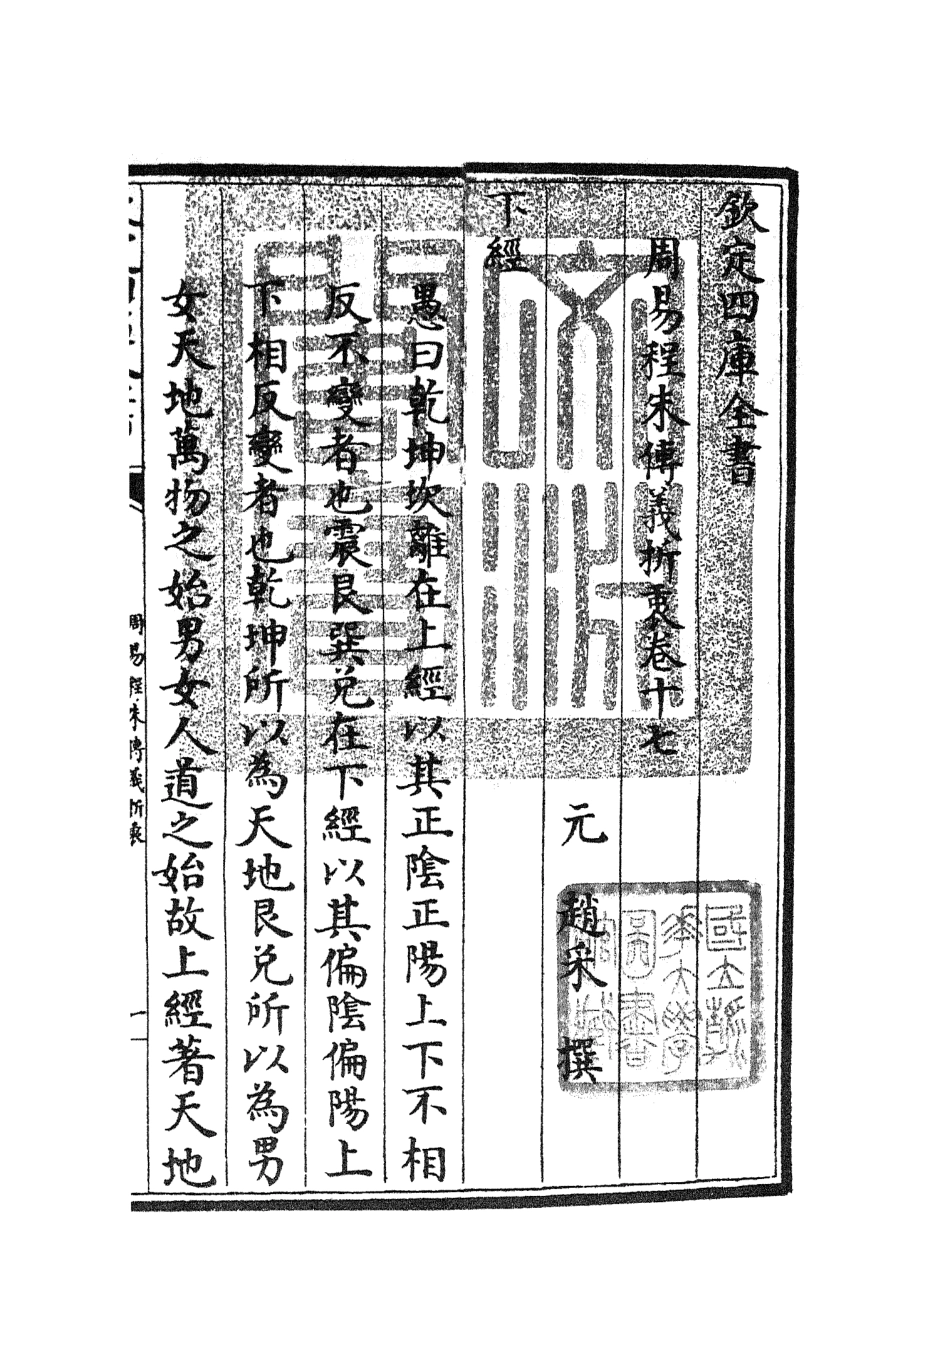 欽定四庫全書
周易程朱傳義折衷卷十七
元 趙采 撰
下經
愚曰乾坤坎離在上經以其正陰正陽上下不相
反不變者也震艮巽兌在下經以其偏陰偏陽上
下相反變者也乾坤所以為天地艮兌所以為男
女天地萬物之始男女人道之始故上經著天地
周易程朱傳義折衷
一